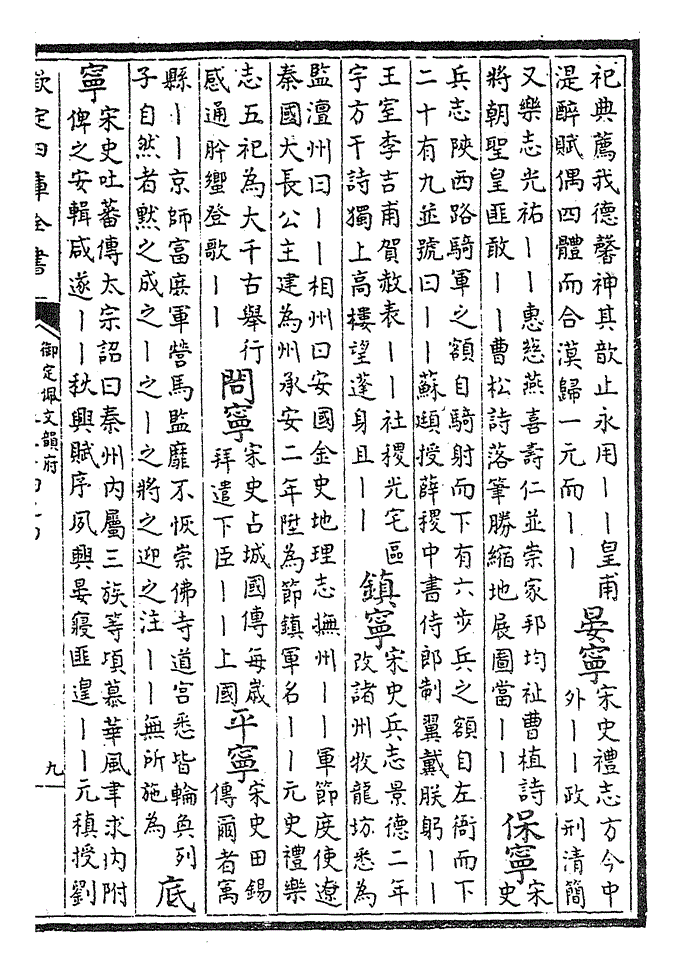 祀典薦我德馨神其歆止永用丨丨皇甫
湜醉賦偶四體而合漠歸一元而丨丨
晏寧
宋史禮志方今中
外丨丨政刑清簡
又樂志光祐丨丨惠慈燕喜壽仁並崇家邦均祉曹植詩
將朝聖皇匪敢丨丨曹松詩落筆勝縮地展圖當丨丨
保寧
宋
史
兵志陝西路騎軍之額自騎射而下有六步兵之額自左衙而下
二十有九並號曰丨丨蘇頲授薛稷中書侍郎制翼戴朕躬丨丨
王室李吉甫賀赦表丨丨社稷光宅區
宇方干詩獨上高樓望蓬身且丨丨
鎮寧
宋史兵志景德二年
改諸州牧龍坊悉為
監澶州曰丨丨相州曰安國金史地理志撫州丨丨軍節度使遼
秦國大長公主建為州承安二年陞為節鎮軍名丨丨元史禮樂
志五祀為大千古舉行
感通肸蠁登歌丨丨
問寧
宋史占城國傳每歲
拜遣下臣丨丨上國
平寧
宋史田錫
傳爾者寓
縣丨丨京師富庶軍營馬監靡不恢崇佛寺道宮悉皆輪奐列
子自然者默之成之丨之丨之將之迎之注丨丨無所施為
底
寧
宋史吐蕃傳太宗詔曰秦州內屬三族等頃慕華風聿求內附
俾之安輯咸遂丨丨秋興賦序夙興晏寢匪遑丨丨元稹授劉
欽定四庫全書
御定佩文韻府
九